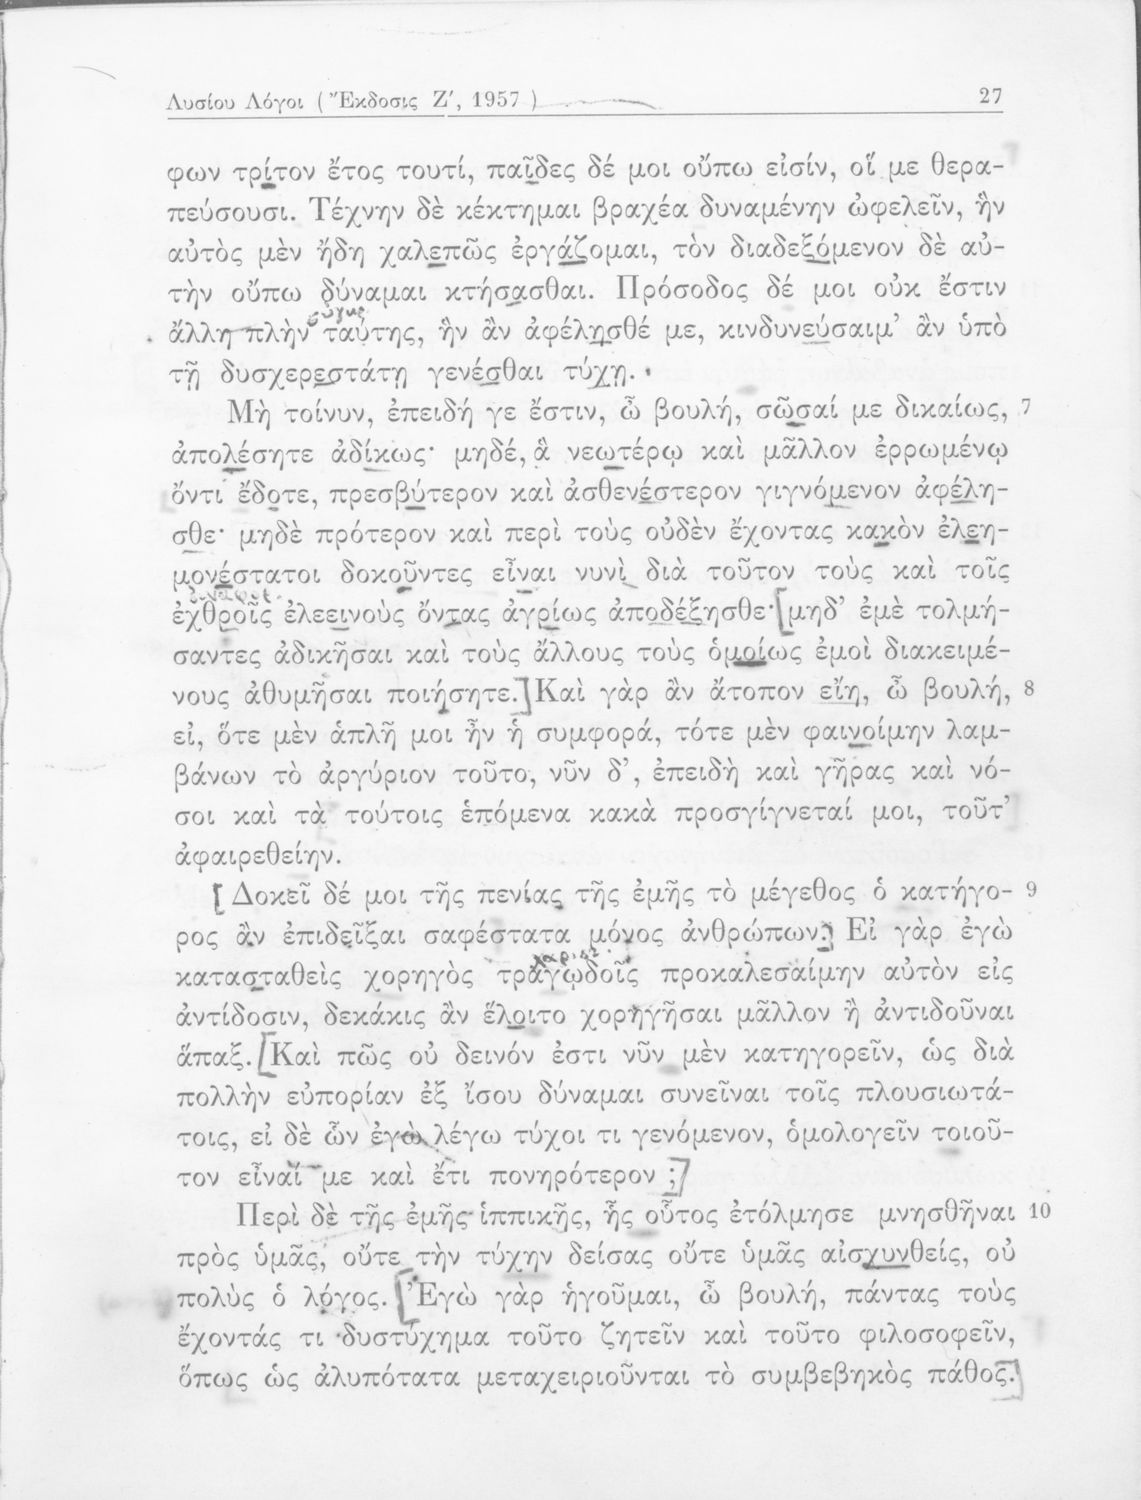 Λυσίου Λόγοι ( Ἔκδοσις Ζ′, 1957 ) 27
φων τρίτον ἔτος τουτί, παῖδες δέ μοι οὔπω εἰσίν, οἵ με θερα-
πεύσουσι. Τέχνην δὲ κέκτημαι βραχέα δυναμένην ὠφελεῖν, ἣν
αὐτὸς μὲν ἤδη χαλεπῶς ἐργάζομαι, τὸν διαδεξόμενον δὲ αὐ-
τὴν οὔπω δύναμαι κτήσασθαι. Πρόσοδος δέ μοι οὐκ ἔστιν
ἄλλη πλὴν ταύτης, ἣν ἂν ἀφέλησθέ με, κινδυνεύσαιμ’ ἂν ὑπὸ
τῇ δυσχερεστάτῃ γενέσθαι τύχῃ.
Μὴ τοίνυν, ἐπειδή γε ἔστιν, ὦ βουλή, σῶσαί με δικαίως, 7
ἀπολέσητε ἀδίκως· μηδέ, ἃ νεωτέρῳ καὶ μᾶλλον ἐρρωμένῳ
ὄντι ἔδοτε, πρεσβύτερον καὶ ἀσθενέστερον γιγνόμενον ἀφέλη-
σθε· μηδὲ πρότερον καὶ περὶ τοὺς οὐδὲν ἔχοντας κακὸν ἐλεη-
μονέστατοι δοκοῦντες εἶναι νυνὶ διὰ τοῦτον τοὺς καὶ τοῖς
ἐχθροῖς ἐλεεινοὺς ὄντας ἀγρίως ἀποδέξησθε· [μηδ’ ἐμὲ τολμή-
σαντες ἀδικῆσαι καὶ τοὺς ἄλλους τοὺς ὁμοίως ἐμοὶ διακειμέ-
νους ἀθυμῆσαι ποιήσητε.] Καὶ γὰρ ἂν ἄτοπον εἴη, ὦ βουλή, 8
εἰ, ὅτε μὲν ἁπλῆ μοι ἦν ἡ συμφορά, τότε μὲν φαινοίμην λαμ-
βάνων τὸ ἀργύριον τοῦτο, νῦν δ’, ἐπειδὴ καὶ γῆρας καὶ νό-
σοι καὶ τὰ τούτοις ἑπόμενα κακὰ προσγίγνεταί μοι, τοῦτ’
ἀφαιρεθείην.
[ Δοκεῖ δέ μοι τῆς πενίας τῆς ἐμῆς τὸ μέγεθος ὁ κατήγο- 9
ρος ἂν ἐπιδεῖξαι σαφέστατα μόνος ἀνθρώπων.] Εἰ γὰρ ἐγὼ
κατασταθεὶς χορηγὸς τραγῳδοῖς προκαλεσαίμην αὐτὸν εἰς
ἀντίδοσιν, δεκάκις ἂν ἕλοιτο χορηγῆσαι μᾶλλον ἢ ἀντιδοῦναι
ἅπαξ. [Καὶ πῶς οὐ δεινόν ἐστι νῦν μὲν κατηγορεῖν, ὡς διὰ
πολλὴν εὐπορίαν ἐξ ἴσου δύναμαι συνεῖναι τοῖς πλουσιωτά-
τοις, εἰ δὲ ὧν ἐγὼ λέγω τύχοι τι γενόμενον, ὁμολογεῖν τοιοῦ-
τον εἶναί με καὶ ἔτι πονηρότερον ;]
Περὶ δὲ τῆς ἐμῆς ἱππικῆς, ἧς οὗτος ἐτόλμησε μνησθῆναι 10
πρὸς ὑμᾶς, οὔτε τὴν τύχην δείσας οὔτε ὑμᾶς αἰσχυνθείς, οὐ
πολὺς ὁ λόγος. [Ἐγὼ γὰρ ἡγοῦμαι, ὦ βουλή, πάντας τοὺς
ἔχοντάς τι δυστύχημα τοῦτο ζητεῖν καὶ τοῦτο φιλοσοφεῖν,
ὅπως ὡς ἀλυπότατα μεταχειριοῦνται τὸ συμβεβηκὸς πάθος.]